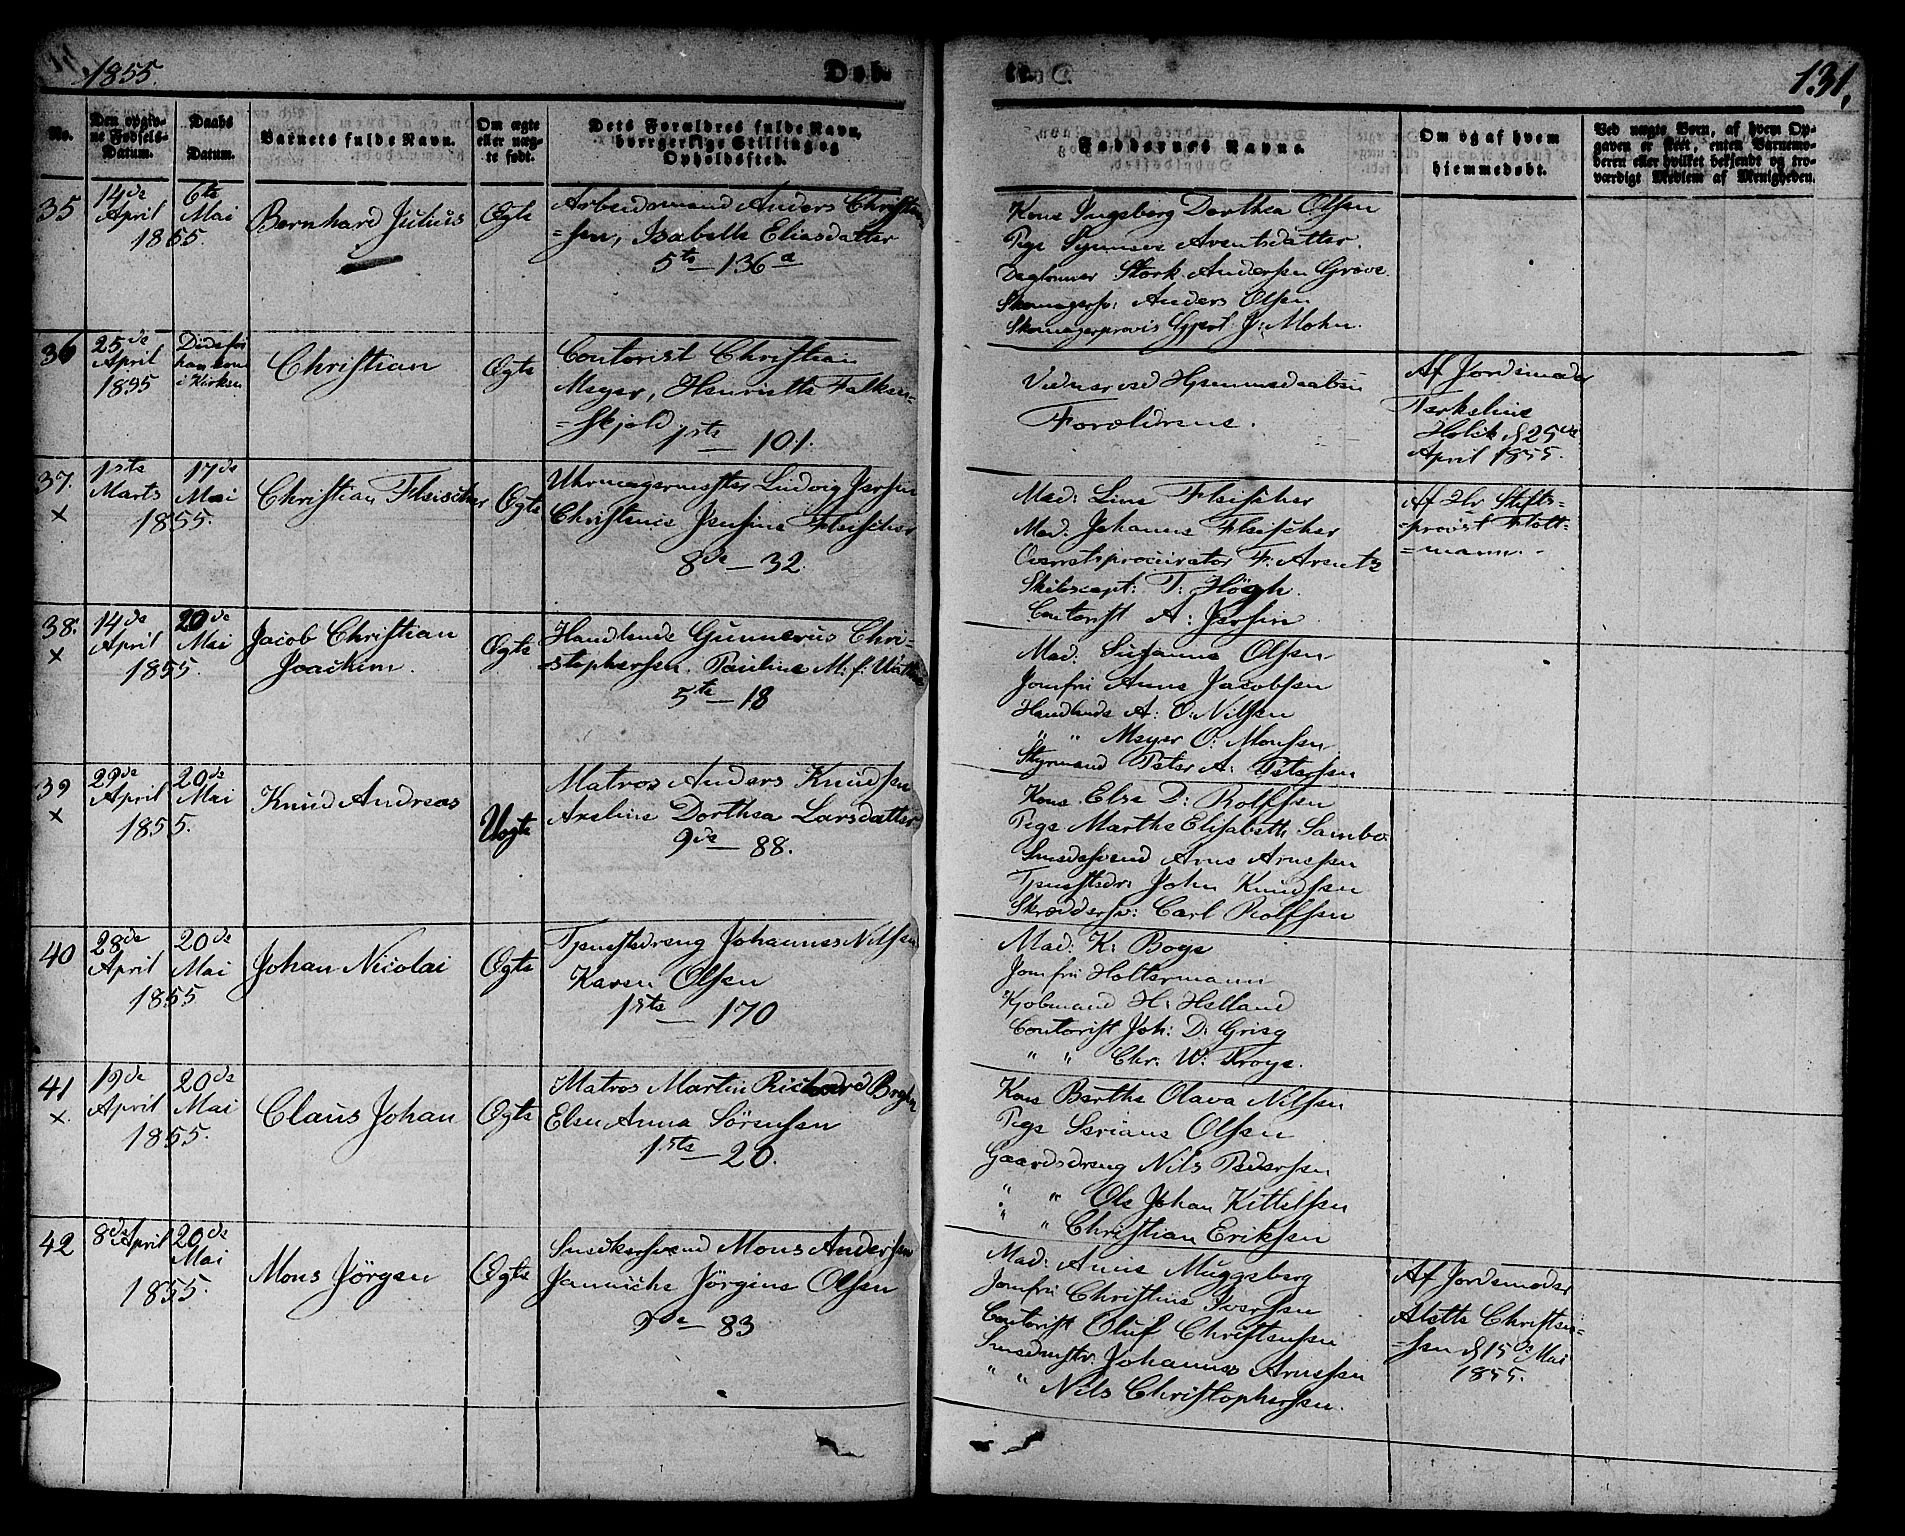 1855. Døb- te. 131,
No. Den opgivne Fødsels-Datum. Daabs Datum. Barnets fulde Navn. Om ægte eller uægte født. Dets Forældres fulde Navn, borgerlige Stilling og Opholdssted. Faddernes Navne. Om og af hvem hjemmedøbt. Ved uægte Børn, af hvem Opgaven er skeet, enten Barnemoderen eller hvilket bekjendt og troværdigt Medlem af Menigheden.
35 14de April 1855. 6te Mai Bernhard Julius Ægte
Arbeidsmand Anders Christen
=sen, Isabelle Eliasdatter
5te — 136 a
Kone Ingeborg Dorthea Olsen
Pige Synneve Arentsdatter.
Daglønner Stork Andersen Grøve
Skomagersv: Anders Olsen
Skomagerprovis Gjert J: Mohn.
36 25de April 1855 Døde før han kom i Kirken Christian Ægte
Contorist Christian
Meyer, Henriette Falken=
=skjold
1ste — 101.
Vidner ved Hjemmedaaben
Forældrene.
Af Jordemoder
Terkeline
Holck d 25de
April 1855.
37. × 1ste Marts 1855. 17de Mai Christian Fleischer Ægte
Uhrmagermester Ludvig Jersin
Christence Jensine Fleischer
8de — 32.
Mad: Line Fleischer
Mad: Johanne Fleischer
Overretsprocurator F: Arentz
Skibscapt: T: Høgh.
Contorist A: Jersin
Af Hr Stifts=
=provst Flott=
=mann. -
38. × 14de April 1855. 20de Mai Jacob Christian Joackim. Ægte
Handlende Gunnerius Chri-
=stophersen. Pauline M: f.
5te — 18
Mad: Susanne Olsen
Jomfru Anne Jacobsen
Handlende A: O: Nilsen
" " Meyer O: Monsen
Styrmand Peter A: Petersen
39 × 29de April 1855. 20de Mai Knud Andreas Uægte
Matros Anders Knudsen
Axeline Dorthea Larsdatter
9de — 88.
Kone Else D: Rolfsen
Pige Marthe Elisabeth Sambo.
Smedesvend Arne Arnesen
Tjenestedr: John Knudsen
Skræddersv: Carl Rolfsen
40 28de April 1855 20de Mai Johan Nicolai Ægte
Tjenestedreng Johannes Nilsen
Karen Olsen
1ste — 170
Mad: K: Boye
Jomfru Holtermann
Kjøbmand H: Helland
Contorist Joh: D: Grieg
" " Chr. W: Troye.
41 ×. 19de April 1855. 20de Mai Claus Johan Ægte
Matros Martin Richard
Elen Anna Sörensen
1ste — 20.
Kone Berthe Olava Nilsen
Pige Seriane Olsen
Gaardsdreng Nils Pedersen
" " Ole Johan Kittelsen
" " Christian Eriksen
42 8de April 1855. 20de Mai Mons Jörgen Ægte
Snedkersvend Mons Andersen
Jannicke Jörgine Olsen
9de — 83
Mad: Anne Muggeberg
Jomfru Christine Iversen
Contorist Oluf Christensen
Smedmstr. Johannes Arnesen
" " Nils Christophersen.
Af Jordemoder
Aletta Christen=
=sen d 15de Mai
1855.